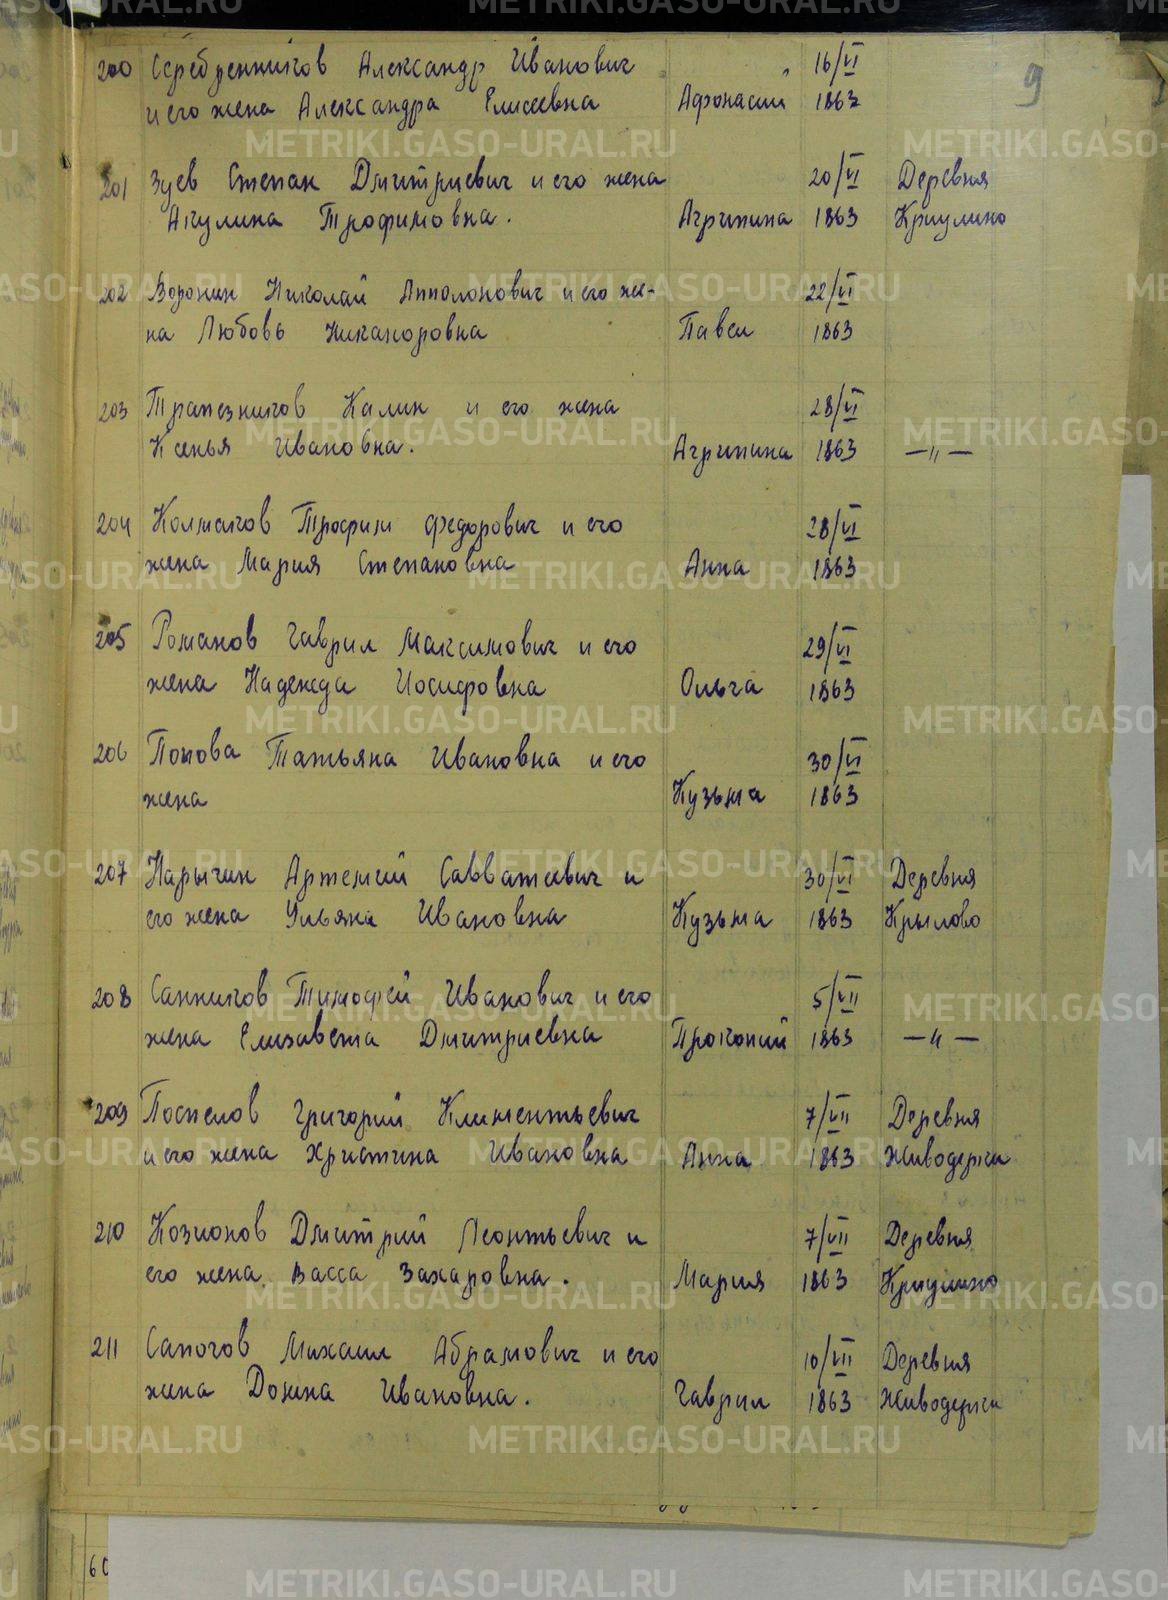 9
200 Серебренников Александр Иванович 16/VI
и его жена Александра Елисеевна Афонасий 1863
201 Зуев Степан Дмитриевич и его жена 20/VI Деревня
Акулина Трофимовна. Агрипина 1863 Криулино
202 Воронин Николай Апполонович и его же- 22/VI
на Любовь Никаноровна Павел 1863
203 Трапезников Калин и его жена 28/VI
Ксенья Ивановна. Агрипина 1863 —"—
204 Колмаков Трофим Федорович и его 28/VI
жена Мария Степановна Анна 1863
205 Романов Гаврил Максимович и его 29/VI
жена Надежда Иосифовна Ольга 1863
206 Попова Татьяна Ивановна и его 30/VI
жена Кузьма 1863
207 Нарычин Артемий Савватеевич и 30/VI Деревня
его жена Ульяна Ивановна Кузьма 1863 Крылово
208 Санников Тимофей Иванович и его 5/VII
жена Елизавета Дмитриевна Прокопий 1863 —"—
209 Поспелов Григорий Климентьевич 7/VII Деревня
и его жена Христина Ивановна Анна 1863 Живодерка
210 Козионов Дмитрий Леонтьевич и 7/VII Деревня
его жена Васса Захаровна. Мария 1863 Криулино
211 Сапогов Михаил Абрамович и его 10/VII Деревня
жена Домна Ивановна. Гаврил 1863 Живодерка
60
METRIKI.GASO-URAL.RU